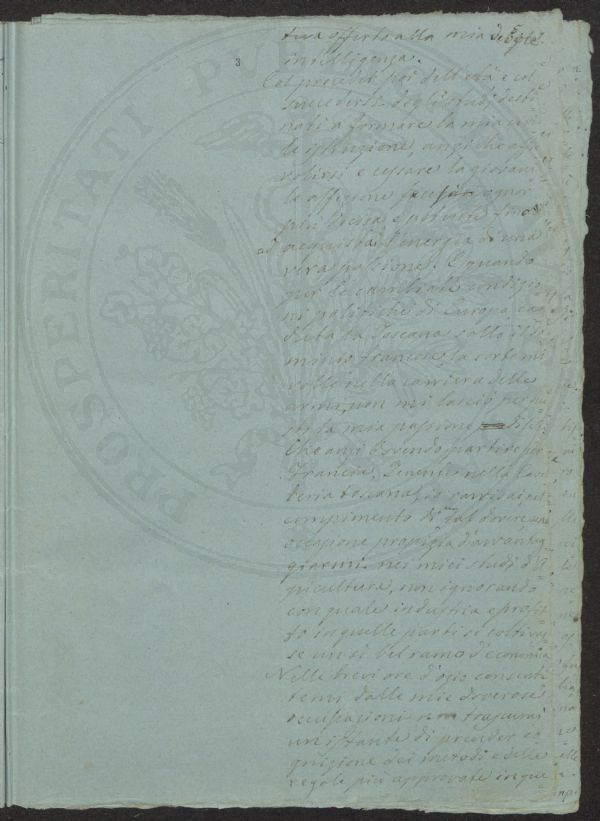 3
tiva offerto alla mia debole
intelligenza.
Col preceder poi dell'età e col
succedersi degli studj desti
nati a formare la mia
le istruzione, anzi che
volirsi e cessare la giovani
le affezione ognor
più decisa e potente fino
ad acquistar l'energia di una
vera passione. E quando
per le cambiate condizio
ni politiche di Europa, ca
duta la Toscana sotto il do
minio francese la sorte mi
volle nella carriera delle
armi, non mi lasciò per
la mia passione
Che anzi dovendo partire per
Francia, Tenente nella
teria toscana, io ravvisai nel
compimento di tal dovere una
occasione propizia d'avvantag
giarmi nei miei studi d'a
gricultura, non ignorando
con quale industria e profit
to in quelle parti si coltivas
se un sì bel ramo d'economia
Nelle brevi ore d'ozio consenti
temi dalle mie doverose
occupazioni non trascurai
un istante di prender co
gnizione dei metodi e delle
regole più approvate in que
PROSPERITATI